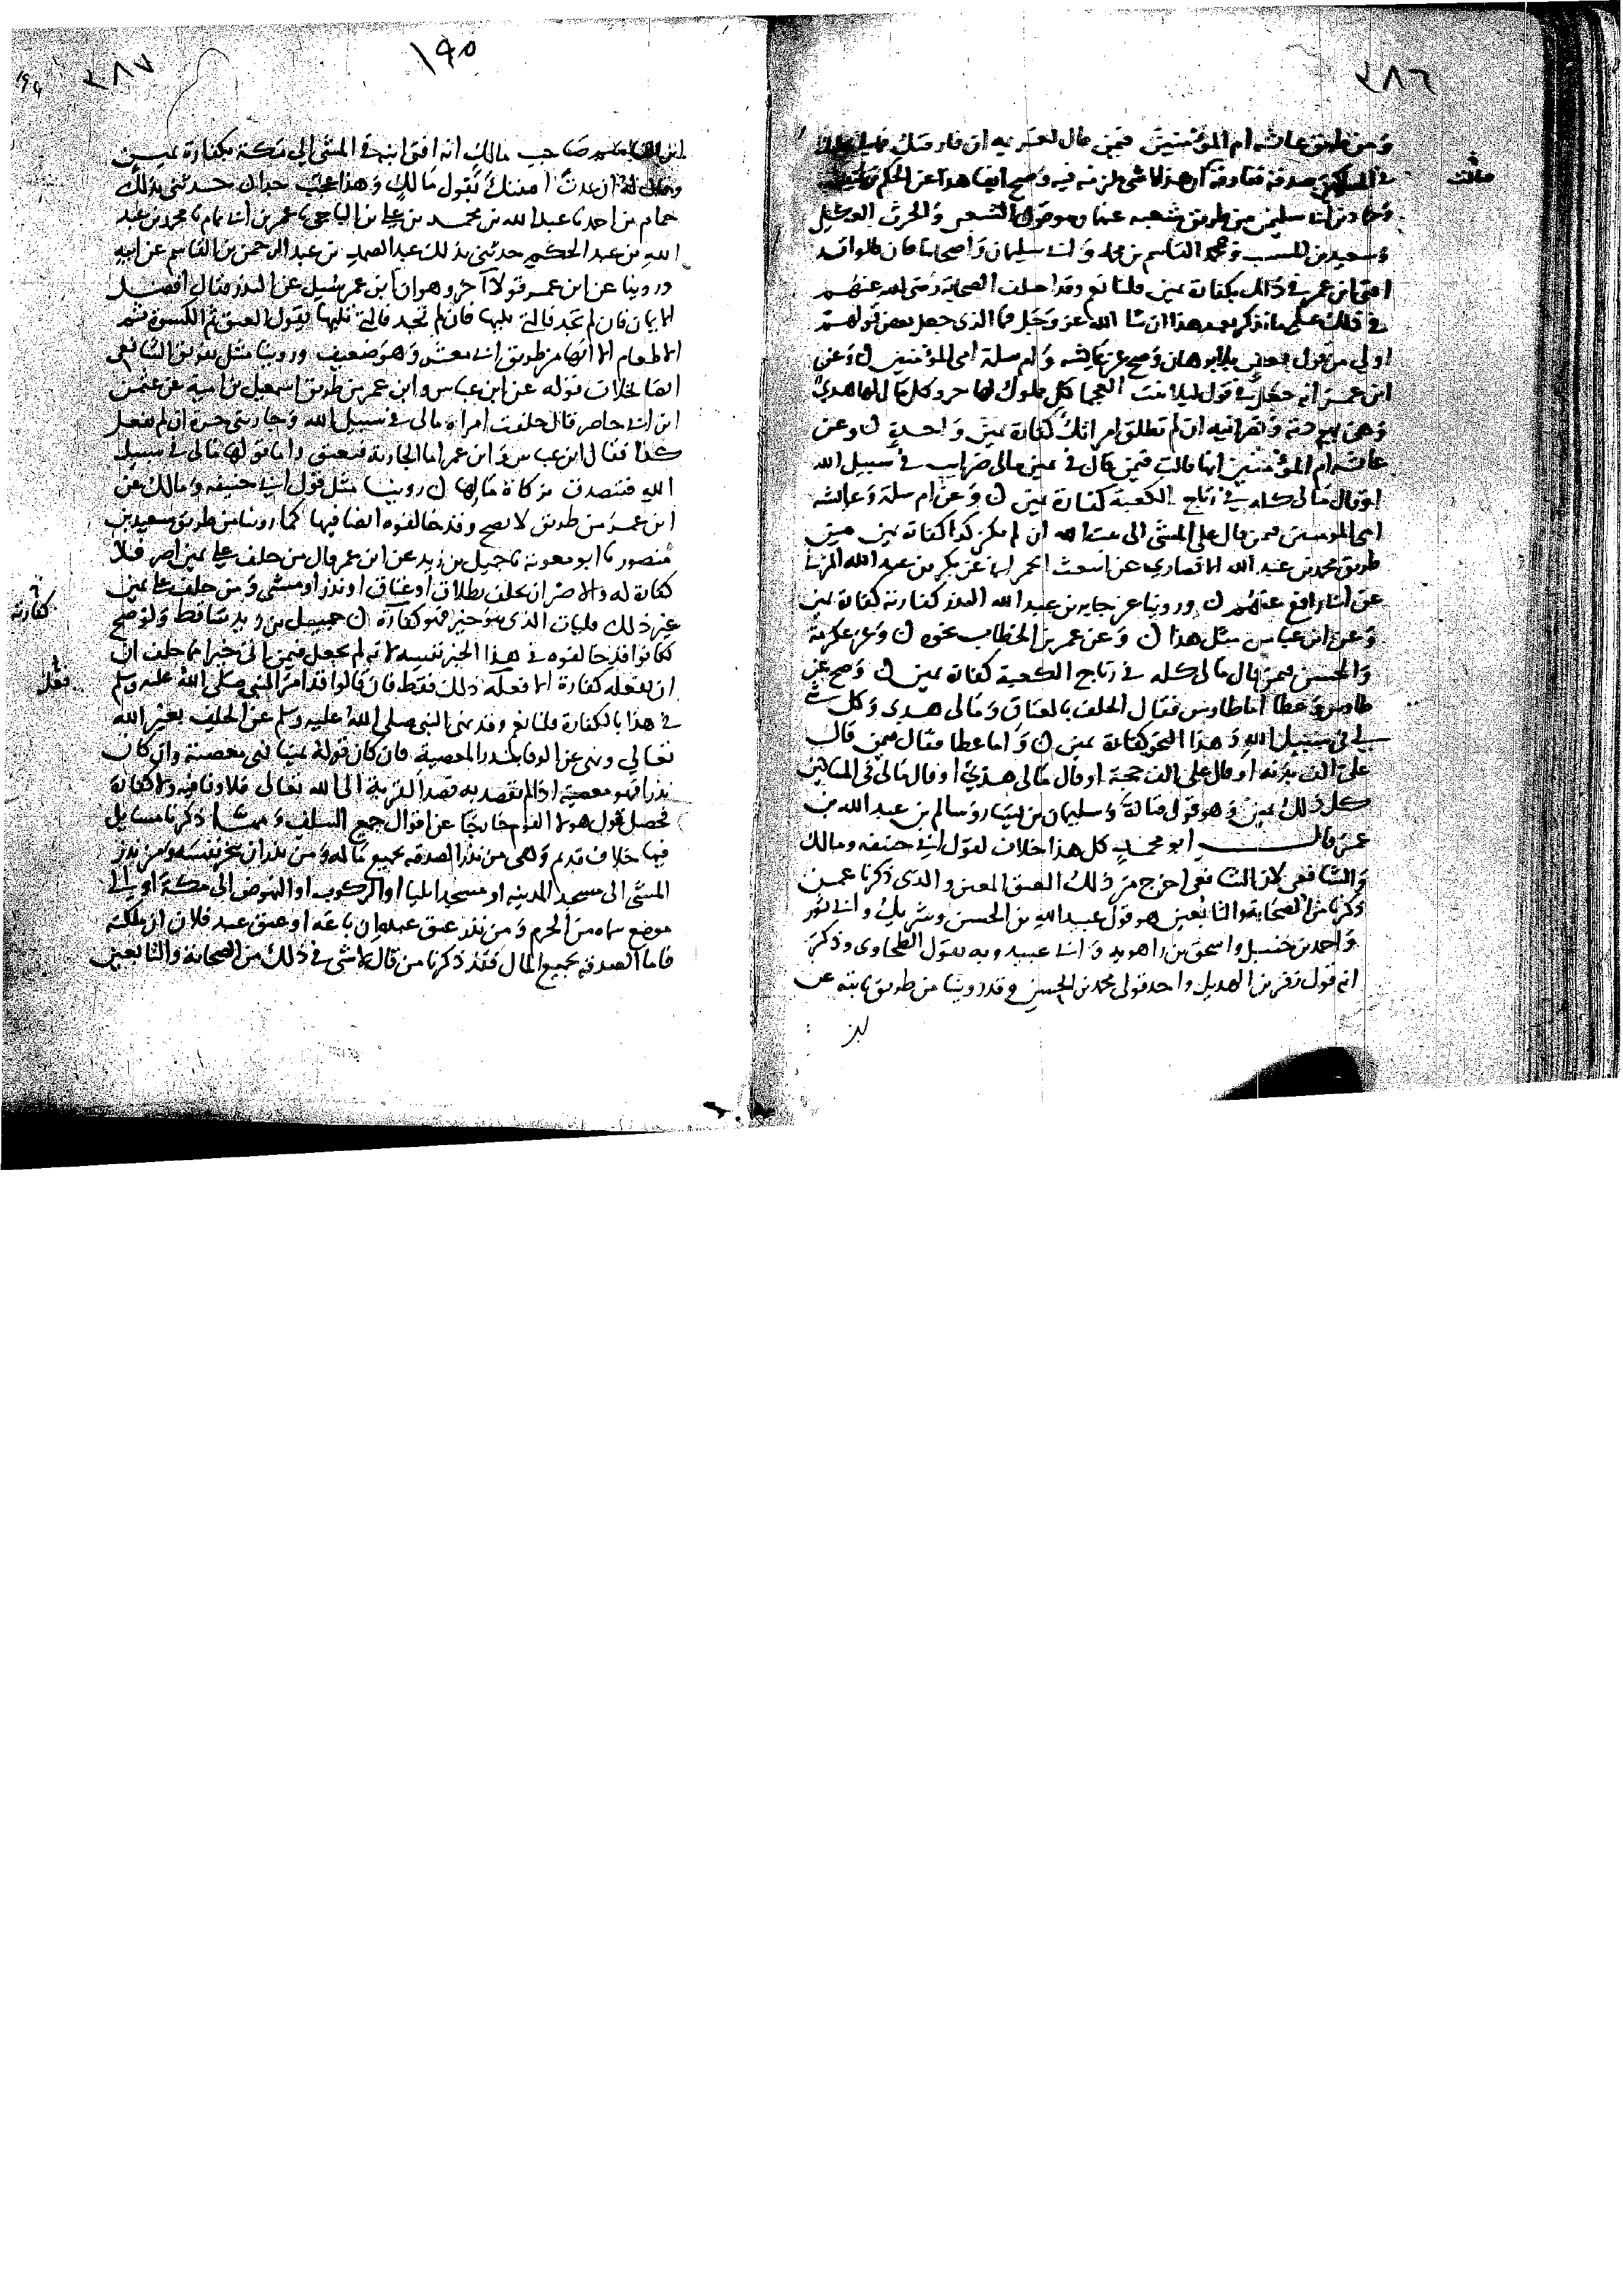 ٢٨٦
ومن طريق عائشة ام المؤمنين فيمن قال لغريمه ان فارقتك فمالي عليك
في المساكين صدقة ففارقه ان هذا لا شي يلزمه فيه وصح ايضا هذا عن الحكم بن عتيبة
قالت
وحماد بن ابي سليمن من طريق شعبه عنهما وهو قول الشعبي والحرث العكلي
وسعيد بن المسيب والقاسم بن محمد وابي سليمان واصحابنا فان قالوا قد
افتى ابن عمر في ذلك بكفارة يمين قلنا نعم وقد اختلف الصحابة رضي الله عنهم
في ذلك على ما نذكر بعد هذا ان شا الله عز وجل فما الذي جعل بعض قولهم
اولى من قول بعض بلا برهان وصح عن عائشه وام سلمة امي المؤمنين ن وعن
ابن عمر انه جعل في قول ليلى بنت العجما كل مملوك لها حر وكل مال لها هدي
وهي يهودية ونصرانيه ان لم تطلق امراتك كفارة يمين واحدة ن وعن
عائشه ام المؤمنين انها قالت فيمن قال في يمين مالي ضرايب في سبيل الله
او قال مالي كله في رتاج الكعبة كفارة يمين ن وعن ام سلمة وعائشه
امي المومنين فيمن قال علي المشي الى بيت الله ان لم يكن كذا كفارة يمين من
طريق محمد بن عبد الله الانصاري عن اشعث الحمراني عن بكر بن عبد الله المزني
عن ابي رافع عنهم ن وروينا عن جابر بن عبد الله النذر كفارته كفارة يمين
وعن ابن عباس مثل هذا ن وعن عمر بن الخطاب نحوه ن وعن عكرمة
والحسن فيمن قال مالي كله في رتاج الكعبة كفارة يمين ن وصح عن
طاوس وعطا اما طاوس فقال الحلف بالعتاق ومالي هدي وكل شي
لي في سبيل الله وهذا النحو كفارة يمين ن واما عطا فقال فيمن قال
علي الف بدنه او قال علي الف حجة او قال مالي هدي او قال مالي في المساكين
كل ذلك يمين وهو قول قتادة وسليمان بن يسار وسالم بن عبد الله بن
عمر قال ابو محمد كل هذا خلاف لقول ابي حنيفه ومالك
والشافعي لان الشافعي اخرج من ذلك العتق المعين والذي ذكرنا عمن
ذكرنا من الصحابة والتابعين هو قول عبيد الله بن الحسن وشريك وابي ثور
واحمد بن حنبل واسحق بن راهويه وابي عبيد وبه يقول الطحاوي وذكر
انه قول زفر بن الهذيل واحد قولي محمد بن الحسن وقد روينا من طريق ثابته عن
ابن
١٩٥
٢٨٧
ابن القاسم صاحب مالك انه افتى ابنه في المشي الى مكة بكفارة يمين
وقال له ان عدت افتيتك بقول مالك وهذا عجب جدا ن حدثني بذلك
حمام بن احمد نا عبد الله بن محمد بن علي نا الباجي نا عمر بن ابي تمام نا محمد بن عبد
الله بن عبد الحكم حدثني بذلك عبد الصمد بن عبد الرحمن بن القاسم عن ابيه
وروينا عن ابن عمر قولا آخر وهو ان ابن عمر سئل عن النذر فقال افضل
الايمان فان لم تجد فالتي تليها فان لم تجد فالتي تليها يقول العتق ثم الكسوة ثم
الاطعام الا انها من طريق ابي معشر وهو ضعيف وروينا مثل تفريق الشافعي
ايضا بخلاف قوله عن ابن عباس وابن عمر من طريق اسمعيل بن امية عن عثمن
ابن ابي حاضر قال حلفت امراة مالي في سبيل الله وجاريتي حرة ان لم تفعل
كذا فقال ابن عباس وابن عمر اما الجارية فتعتق واما قولها مالي في سبيل
الله فتتصدق بزكاة مالها ن روينا مثل قول ابي حنيفه ومالك عن
ابن عمر من طريق لا يصح وقد خالفوه ايضا فيها كما روينا من طريق سعيد بن
منصور نا ابو معوية نا جميل بن زيد عن ابن عمر قال من حلف على يمين اصر فلا
كفارة له والاصر ان يحلف بطلاق او عتاق او نذر او مشي ومن حلف على يمين
غير ذلك فليات الذي هو خير فهو كفارته ن جميل بن زيد ساقط ولو صح
كفارته
لكانوا قد خالفوه في هذا الخبر نفسه لانه لم يجعل فيمن اتى خيرا مما حلف ان
ان يفعله كفارة الا فعله ذلك فقط فان قالوا قد امر النبي صلى الله عليه وسلم
فعل
في هذا بالكفارة قلنا نعم وقد نهى النبي صلى الله عليه وسلم عن الحلف بغير الله
تعالى ونهى عن الوفا بنذر المعصية فان كان قوله يمينا فهي معصية وان كان
نذرا فهو معصية اذ لم يقصد به قصد القربة الى الله تعالى فلا وفا فيه ولا كفارة
فحصل قول هولا القوم خارجا عن اقوال جميع السلف وممنا ذكرنا مسايل
فيها خلاف قديم وهي من نذر الصدقه بجميع ماله ومن نذر ان ينحر نفسه ومن نذر
المشي الى مسجد المدينه او مسجد ايليا او الركوب او النهوض الى مكة او الى
موضع سماه من الحرم ومن نذر عتق عبده ان باعه او عتق عبد فلان ان ملكه
فاما الصدقه بجميع المال فقد ذكرنا من قال لا شي في ذلك من الصحابة والتابعين